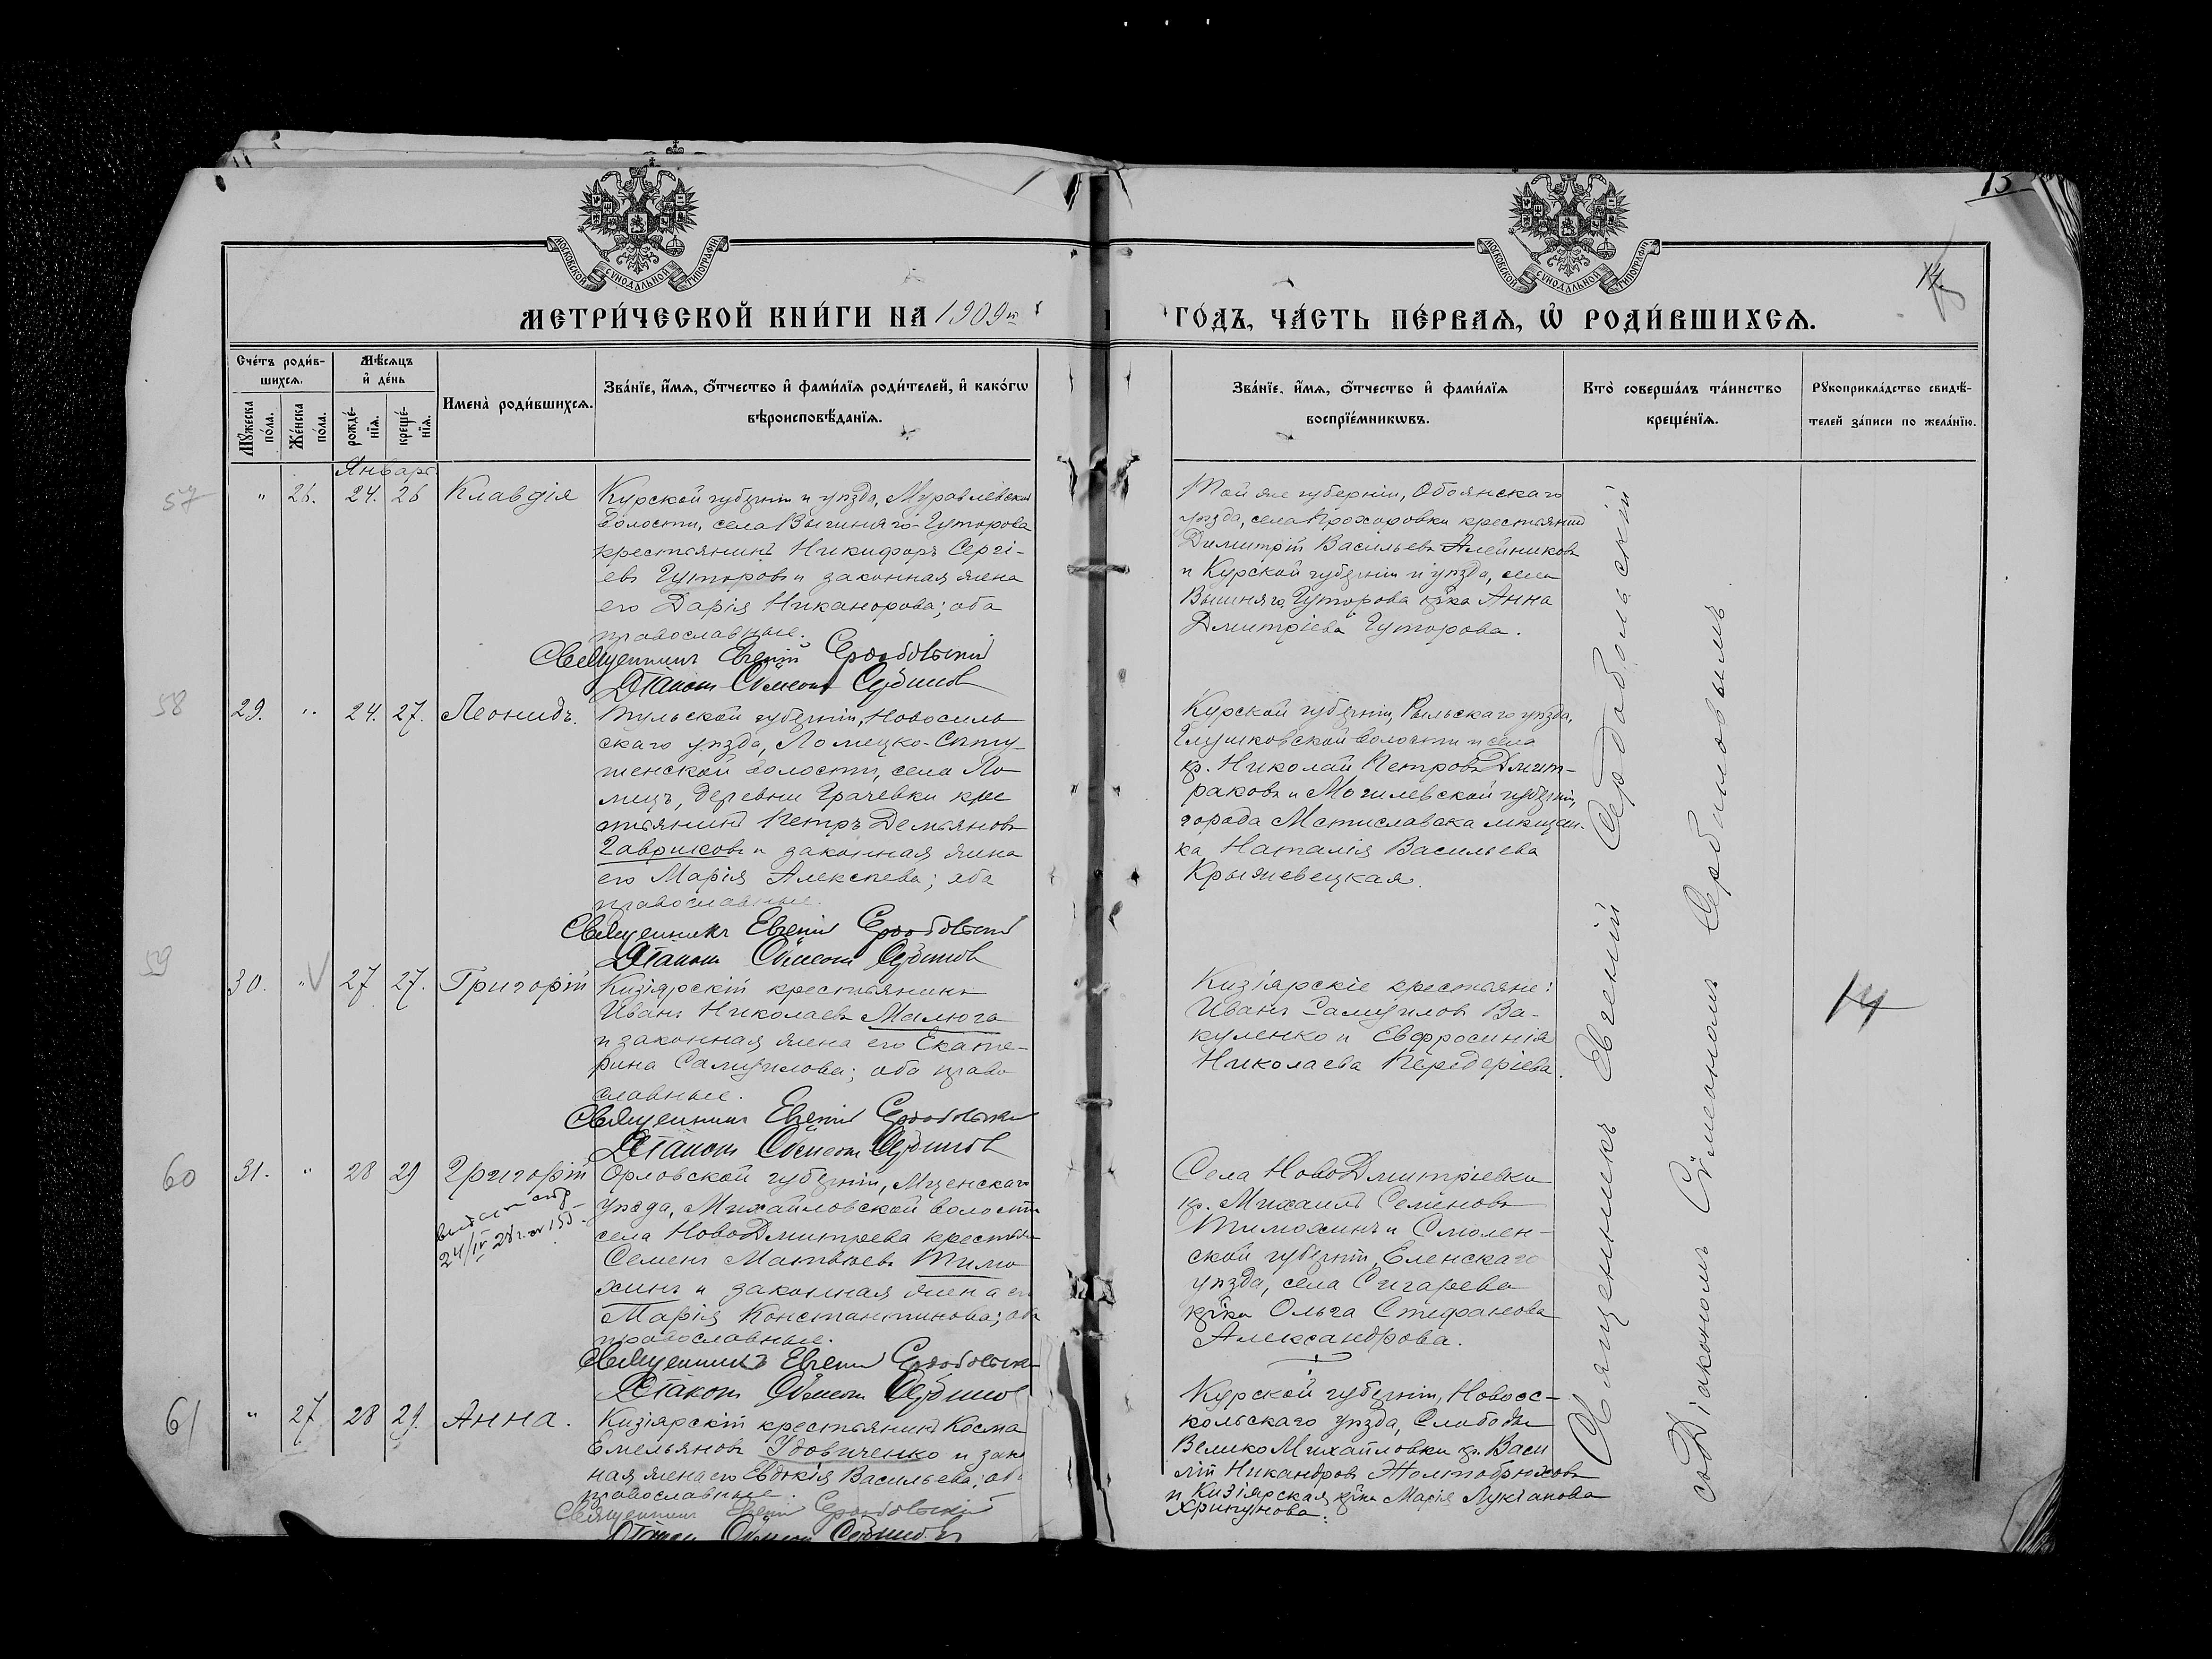 13
14
МОСКОВСКОЙ СУНОДАЛЬНОЙ ТИПОГРАФІИ
МОСКОВСКОЙ СУНОДАЛЬНОЙ ТИПОГРАФІИ
МЕТРИ́ЧЕСКОЙ КНИ́ГИ НА 1909й
ГО́ДЪ, ЧА́СТЬ ПЕ́РВАѦ, Ѽ РОДИ́ВШИХСѦ.
Сче́тъ роди́в-
шихсѧ.
Мꙋ́жеска по́ла.
Же́нска пола.
Мѣ́сѧцъ
и҆ де́нь
рожде́-
нїѧ.
креще́-
нїѧ.
Имена̀ роди́вшихсѧ.
Зва́нїе, и҆́мѧ, ѻ҆́тчество и҆ фами́лїѧ роди́телей, и҆ како́гѡ
вѣроисповѣ́данїѧ.
Зва́нїе, и҆́мѧ, ѻ҆́тчество и҆ фами́лїѧ
воспрїе́мникѡвъ.
Кто̀ соверша́лъ та́инство
креще́нїѧ.
Рꙋкоприкла́дство свидѣ́-
телей за́писи по жела́нїю.
Январь
57 " 26. 24. 26 Клавдія
Курской губерніи и уѣзда, Муравлевской
волости, села Вышняго-Гуторова
крестьянинъ Никифоръ Сергі-
евъ Гуторовъ и законная жена
его Дарія Никанорова; оба
православные.
Священникъ Евгеній Сердобольскій
Діаконъ Сѵмеонъ Сербиновъ
Той же губерніи, Обоянскаго
уѣзда, села Прохоровки крестьянинъ
Димитрій Васильевъ Алейниковъ
и Курской губерніи и уѣзда, села
Вышняго Гуторова кр̃ка Анна
Дмитріева Гуторова.
58 29. " 24. 27. Леонидъ.
Тульской губерніи, Новосиль
скаго уѣзда, Ломецко-Сту-
женской волости, села Ло
мецъ, деревни Грачевки кре
стьянинъ Петръ Демьяновъ
Гавриковъ и законная жена
его Марія Алексѣева; оба
православные.
Священникъ Евгеній Сердобольскій
Діаконъ Сѵмеонъ Сербиновъ
Курской губерніи, Рыльскаго уѣзда,
Глушковской волости и села
кр. Николай Петровъ Дмит-
раковъ и Могилевской губерніи,
города Мстиславска мѣщан-
ка Наталія Васильева
Крыжевецкая.
59 30. " V 27 27. Григорій
Кизіярскій крестьянинъ
Иванъ Николаевъ Малюга
и законная жена его Екате-
рина Самуилова; оба право
славные.
Священникъ Евгеній Сердобольскій
Діаконъ Сѵмеонъ Сербиновъ
Кизіярскіе крестьяне:
Иванъ Самуиловъ Ва-
куленко и Евфросинія
Николаева Передеріева.
14
60 31. " 28 29 Григорій
24/IV 28 г. 155
Орловской губерніи, Мценскаго
уѣзда, Михайловской волости
села НовоДмитрева крестьян
Семенъ Матвѣевъ Тимо
хинъ и законная жена его
Марія Константинова; оба
православные.
Священникъ Евгеній Сердобольскій
Діаконъ Сѵмеонъ Сербиновъ
Села НовоДмитріевки
кр. Михаилъ Семеновъ
Тимохинъ и Смолен-
ской губерніи, Еленскаго
уѣзда, села Сигарева
кр̃ка Ольга Стефанова
Александрова.
61 " 27 28 29. Анна.
Кизіярскій крестьянинъ Косма
Емельяновъ Удовиченко и зак
ная жена его Евдокія Васильева; об
православные.
Священникъ Евгеній Сердобольскій
Діаконъ Сѵмеонъ Сербиновъ
Курской губерніи, Новоос-
кольскаго уѣзда, Слободы
ВеликоМихайловки кр. Васи
лій Никандровъ Желтобрюховъ
и Кизіярская кр̃ка Марія Лукіанова
Хрипунова.
Священникъ Евгеній Сердобольскій
съ Діакономъ Сѵмеономъ Сербиновымъ